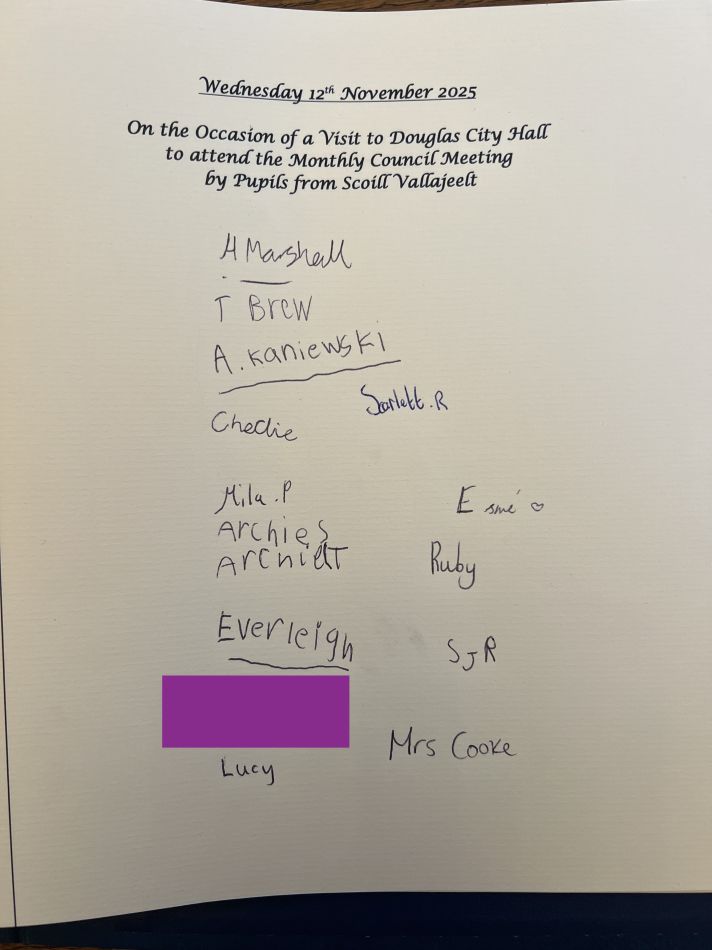 Wednesday 12th November 2025
On the Occasion of a Visit to Douglas City Hall
to attend the Monthly Council Meeting
by Pupils from Scoill Vallajeelt
H Marshall
T Brew
A. Kaniewski
Scarlett.R
Mila.P
Esmé ♡
Archie S
Archie T
Ruby
Everleigh
SJR
Mrs Cooke
Lucy